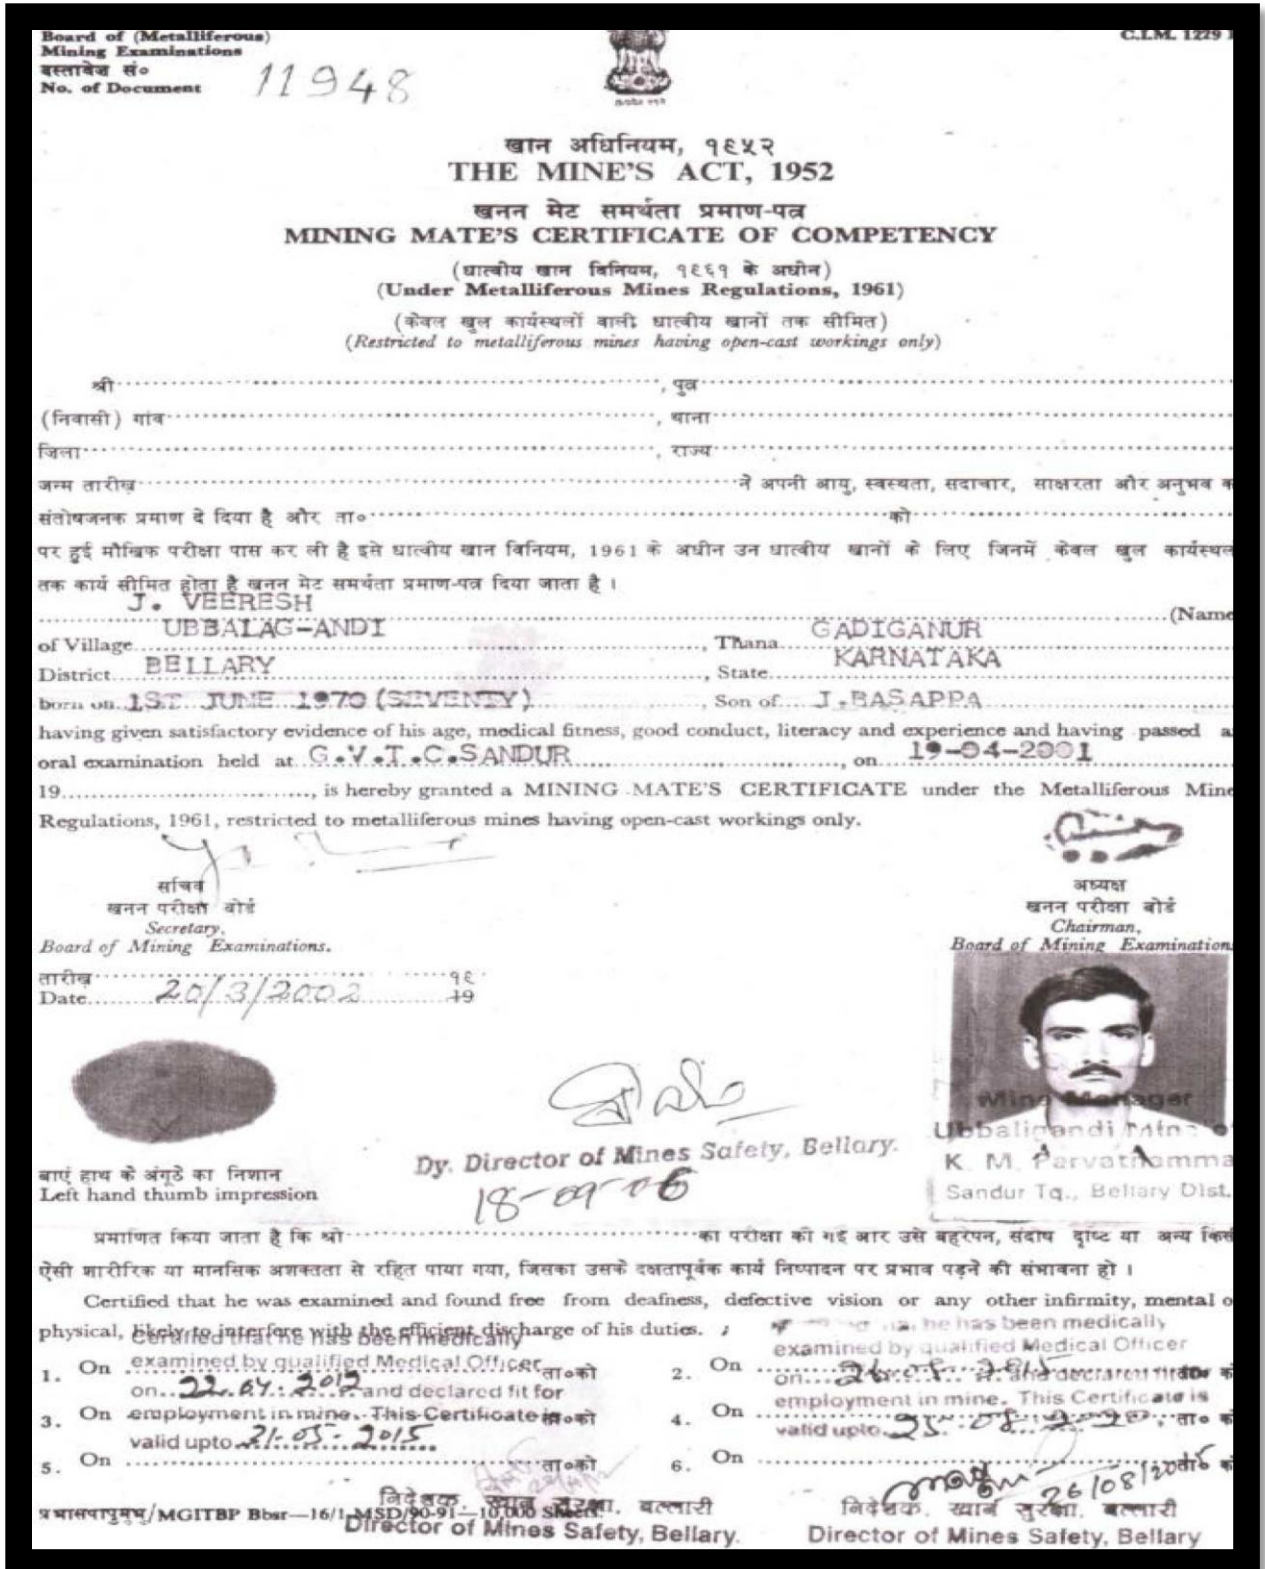 Board of (Metalliferous)
Mining Examinations
दस्तावेज सं०
No. of Document 11948
C.I.M. 1229
खान अधिनियम, १९५२
THE MINE'S ACT, 1952
खनन मेट समर्थता प्रमाण-पत्र
MINING MATE'S CERTIFICATE OF COMPETENCY
(धात्वीय खान विनियम, १९६१ के अधीन)
(Under Metalliferous Mines Regulations, 1961)
(केवल खुल कार्यस्थलों वाली धात्वीय खानों तक सीमित)
(Restricted to metalliferous mines having open-cast workings only)
श्री, पुत्र
(निवासी) गांव, थाना
जिला, राज्य
जन्म तारीख ने अपनी आयु, स्वस्थता, सदाचार, साक्षरता और अनुभव क
संतोषजनक प्रमाण दे दिया है और ता० को
पर हुई मौखिक परीक्षा पास कर ली है इसे धात्वीय खान विनियम, 1961 के अधीन उन धात्वीय खानों के लिए जिनमें केवल खुल कार्यस्थल
तक कार्य सीमित होता है खनन मेट समर्थता प्रमाण-पत्र दिया जाता है ।
J. VEERESH (Name
of Village UBBALAG-ANDI, Thana GADIGANUR
District BELLARY, State KARNATAKA
born on 1ST JUNE 1970 (SEVENTY) Son of J.BASAPPA
having given satisfactory evidence of his age, medical fitness, good conduct, literacy and experience and having passed a
oral examination held at G.V.T.C.SANDUR, on 19-04-2001
19, is hereby granted a MINING MATE'S CERTIFICATE under the Metalliferous Mine
Regulations, 1961, restricted to metalliferous mines having open-cast workings only.
सचिव
खनन परीक्षा बोर्ड
Secretary,
Board of Mining Examinations.
अध्यक्ष
खनन परीक्षा बोर्ड
Chairman,
Board of Mining Examination
तारीख १९
Date 20/3/2002 19
Mine Manager
Ubbaligandi Mine
K. M. Parvathamma
Sandur Tq., Bellary Dist.
Dy. Director of Mines Safety, Bellary.
18-09-06
बाएं हाथ के अंगूठे का निशान
Left hand thumb impression
प्रमाणित किया जाता है कि श्री का परीक्षा की गई और उसे बहरेपन, सदोष दृष्टि या अन्य किस
ऐसी शारीरिक या मानसिक अशक्तता से रहित पाया गया, जिसका उसके दक्षतापूर्वक कार्य निष्पादन पर प्रभाव पड़ने की संभावना हो ।
Certified that he was examined and found free from deafness, defective vision or any other infirmity, mental o
physical, likely to interfere with the efficient discharge of his duties.
Certified that he has been medically
examined by qualified Medical Officer
on and declared fit for
employment in mine. This Certificate is
valid upto 21-05-2015
he has been medically
examined by qualified Medical Officer
on and declared fit for
employment in mine. This Certificate is
valid upto 25-08-2020
1. On ता०को
2. On ता० क
3. On ता०को
4. On ता० क
5. On ता०को
6. On ता० क
26/08/2015
निदेशक, खान सुरक्षा, बल्लारी
Director of Mines Safety, Bellary.
निदेशक, खान सुरक्षा, बल्लारी
Director of Mines Safety, Bellary
MGITBP Bbsr—16/1 MSD/90-91—10,000